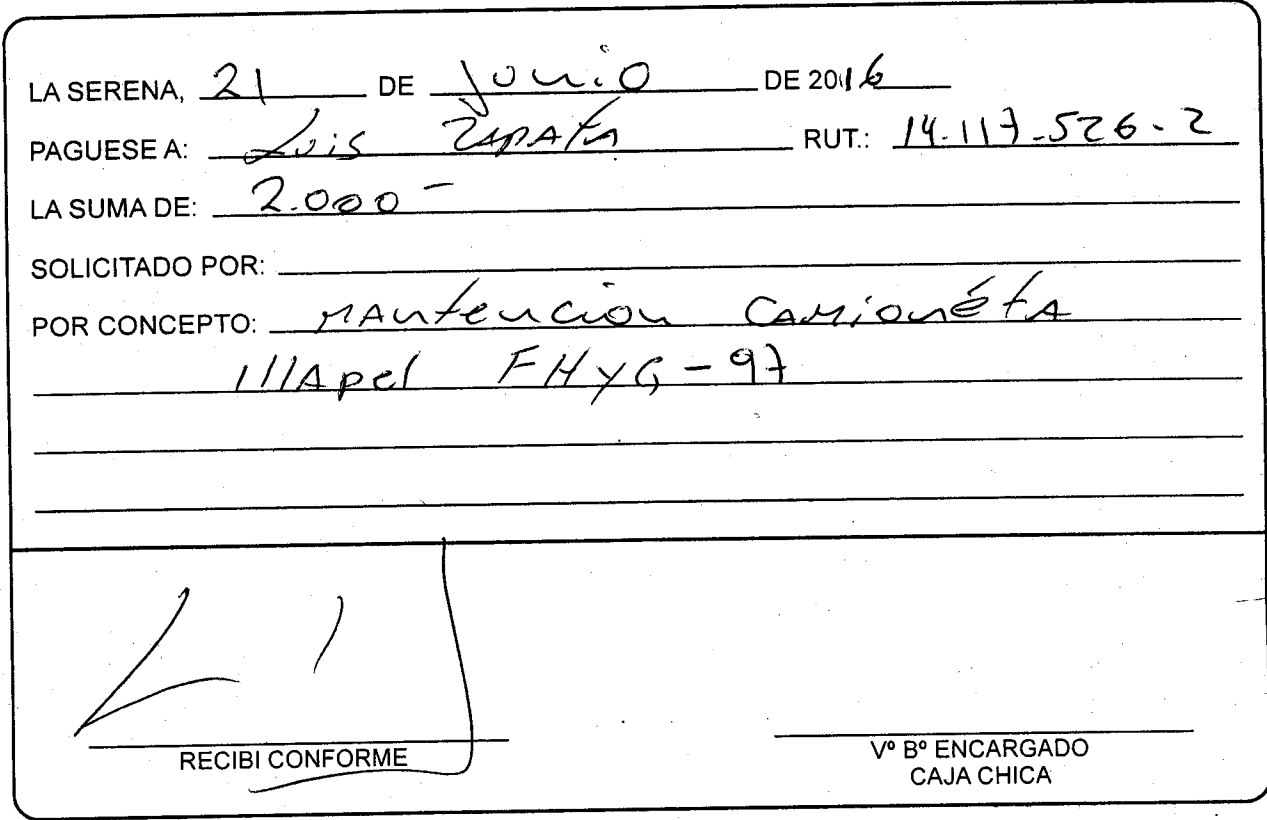 LA SERENA, 21 DE Junio DE 2016
PAGUESE A: Luis ZAPAtA RUT.: 14.117.526-2
LA SUMA DE: 2.000-
SOLICITADO POR:
POR CONCEPTO: MAntencion CAMionétA
IllApel FHYG-97
RECIBI CONFORME
Vº Bº ENCARGADO
CAJA CHICA